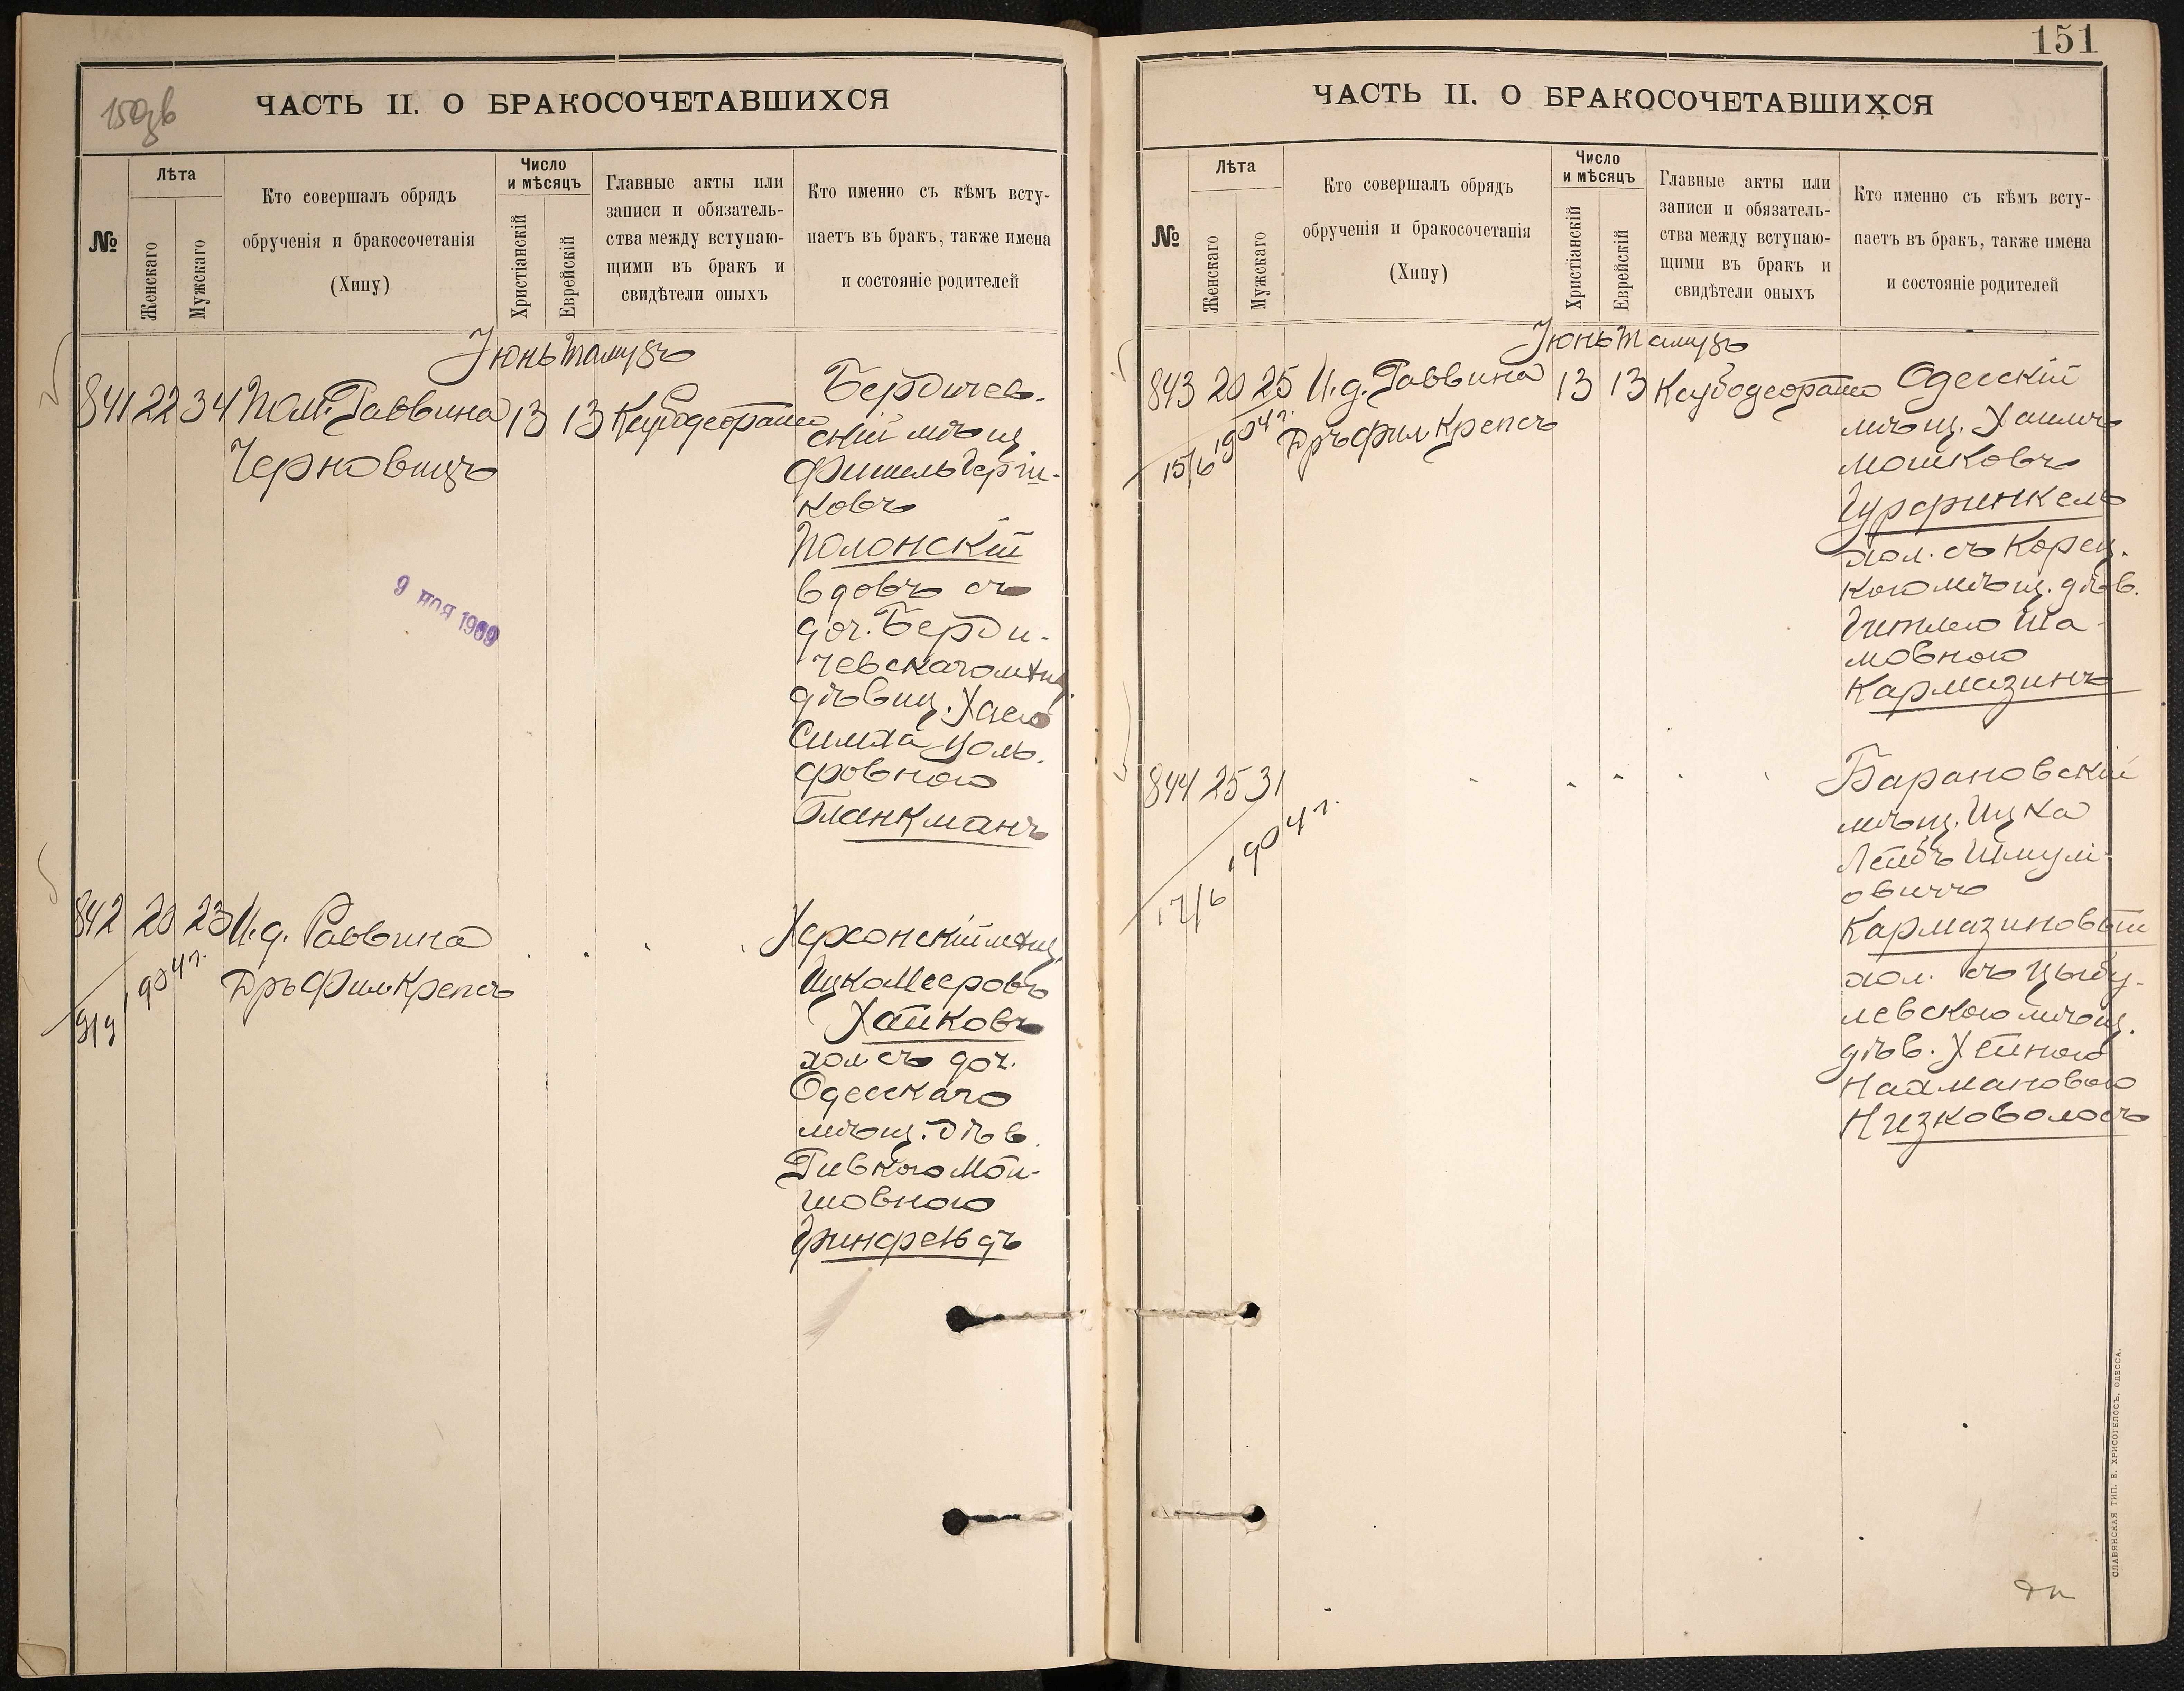 150зв
ЧАСТЬ II. О БРАКОСОЧЕТАВШИХСЯ
№
Лѣта
Женскаго
Мужскаго
Кто совершалъ обрядъ
обрученія и бракосочетанія
(Хипу)
Число
и мѣсяцъ
Христіанскій
Еврейскій
Главные акты или
записи и обязатель-
ства между вступаю-
щими въ бракъ и
свидѣтели оныхъ
Кто именно съ кѣмъ всту-
паетъ въ бракъ, также имена
и состояніе родителей
Іюнь Тамузъ
841 22 34 Пом. Раввина 13 13
Черновицъ
Бердичев-
скій мѣщ
Фишель Герш-
ковъ
Полонскій
вдовъ съ
доч. Берди-
чевскаго мѣщ.
дѣвиц. Хаею
Симха Воль-
фовною
Бланкманъ
9 НОЯ 1909
842 20 23 И. д. Раввина
Дръ Фил Крепсъ
1904 г.
9/9
Херсонскій мѣщ.
Ицко Мееровъ
Хайковъ
хол съ доч.
Одесскаго
мѣщ. дѣв.
Ривкою Мой-
шовною
Гринфельдъ
151
ЧАСТЬ II. О БРАКОСОЧЕТАВШИХСЯ
№
Лѣта
Женскаго
Мужскаго
Кто совершалъ обрядъ
обрученія и бракосочетанія
(Хипу)
Число
и мѣсяцъ
Христіанскій
Еврейскій
Главные акты или
записи и обязатель-
ства между вступаю-
щими въ бракъ и
свидѣтели оныхъ
Кто именно съ кѣмъ всту-
паетъ въ бракъ, также имена
и состояніе родителей
Іюнь Тамузъ
843 20 25 И. д. Раввина 13 13
Дръ Фил Крепсъ
1904 г.
15/6
Одесскій
мѣщ. Хаимъ
Мошковъ
Гурфинкель
хол. съ Корец.
кою мѣщ. дѣв.
Гитлею Ша-
мовною
Кармазинъ
844 25 31
1904 г.
17/6
Барановскій
мѣщ. Ицка
Лейбъ Шмули-
овичъ
Кармазиновый
хол. съ Цыбу-
левскою мѣщ.
дѣв. Хейною
Нахмановою
Низковолосъ
СЛАВЯНСКАЯ ТИП. Е. ХРИСОГЕЛОСЪ, ОДЕССА.